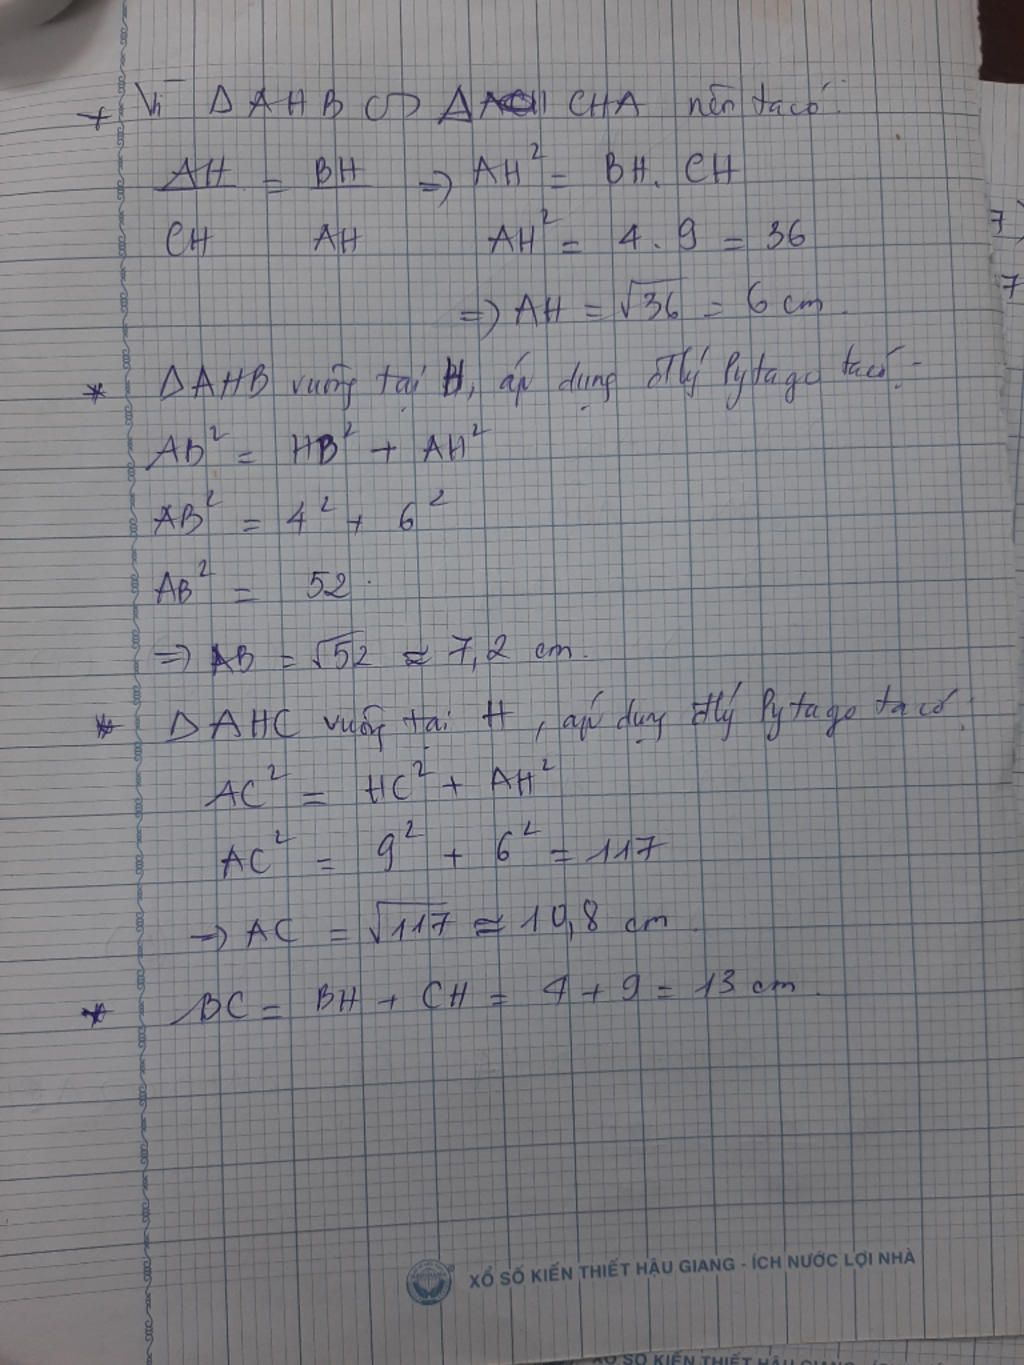 + Vì Δ AHB ∽ Δ CHA nên ta có:
AH/CH = BH/AH ⇒ AH² = BH. CH
AH² = 4 . 9 = 36
⇒ AH = √36 = 6 cm.
* ΔAHB vuông tại H, áp dụng đlý Pytago ta có:
AB² = HB² + AH²
AB² = 4² + 6²
AB² = 52.
⇒ AB = √52 ≈ 7,2 cm.
* Δ AHC vuông tại H, áp dụng đlý Pytago ta có:
AC² = HC² + AH²
AC² = 9² + 6² = 117
⇒ AC = √117 ≈ 10,8 cm.
* BC = BH + CH = 4 + 9 = 13 cm.
7
7
XỔ SỐ KIẾN THIẾT HẬU GIANG - ÍCH NƯỚC LỢI NHÀ
XỔ SỐ KIẾN THIẾT HẬU GIANG